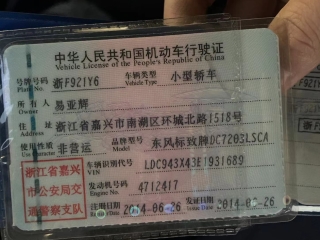 中华人民共和国机动车行驶证
Vehicle License of the People's Republic of China
号牌号码 Plate No. 浙F92IY6 车辆类型 Vehicle Type 小型轿车
所有人 Owner 易亚辉
住址 Address 浙江省嘉兴市南湖区环城北路1518号
使用性质 Use Character 非营运 品牌型号 Model 东风标致牌DC7203LSCA
浙江省嘉兴 车辆识别代号 VIN LDC943X43E1931689
市公安局交 发动机号码 Engine No. 4712417
通警察支队 注册日期 2014-06-26 发证日期 2014-06-26